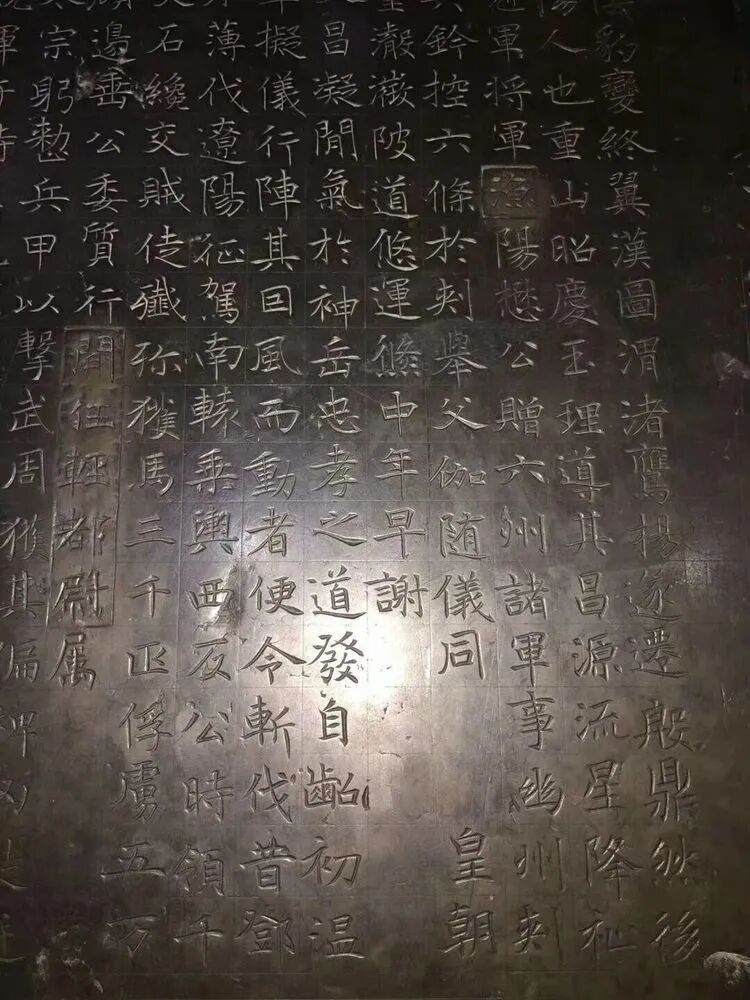 豹變終翼漢圖渭渚鷹楊遂遷殷鼎然後
人也重山昭慶玉理導其昌源流星降祉
軍將軍漁陽懋公贈六州諸軍事幽州刾
鈐控六條於刾舉父伽随儀同 皇朝
陂道悠運倏中年早謝
昌凝閒氣於神岳忠孝之道發自齠初温
擬儀行陣其回風而動者便令斬伐昔鄧
薄伐遼陽征駕南轅乗輿西反公時領千
石纔交賊徒殲殄獲馬三千疋俘虜五万
邊垂公委質行閒任輕都尉属
宗躬勑兵甲以擊武周獲其偏裨凶